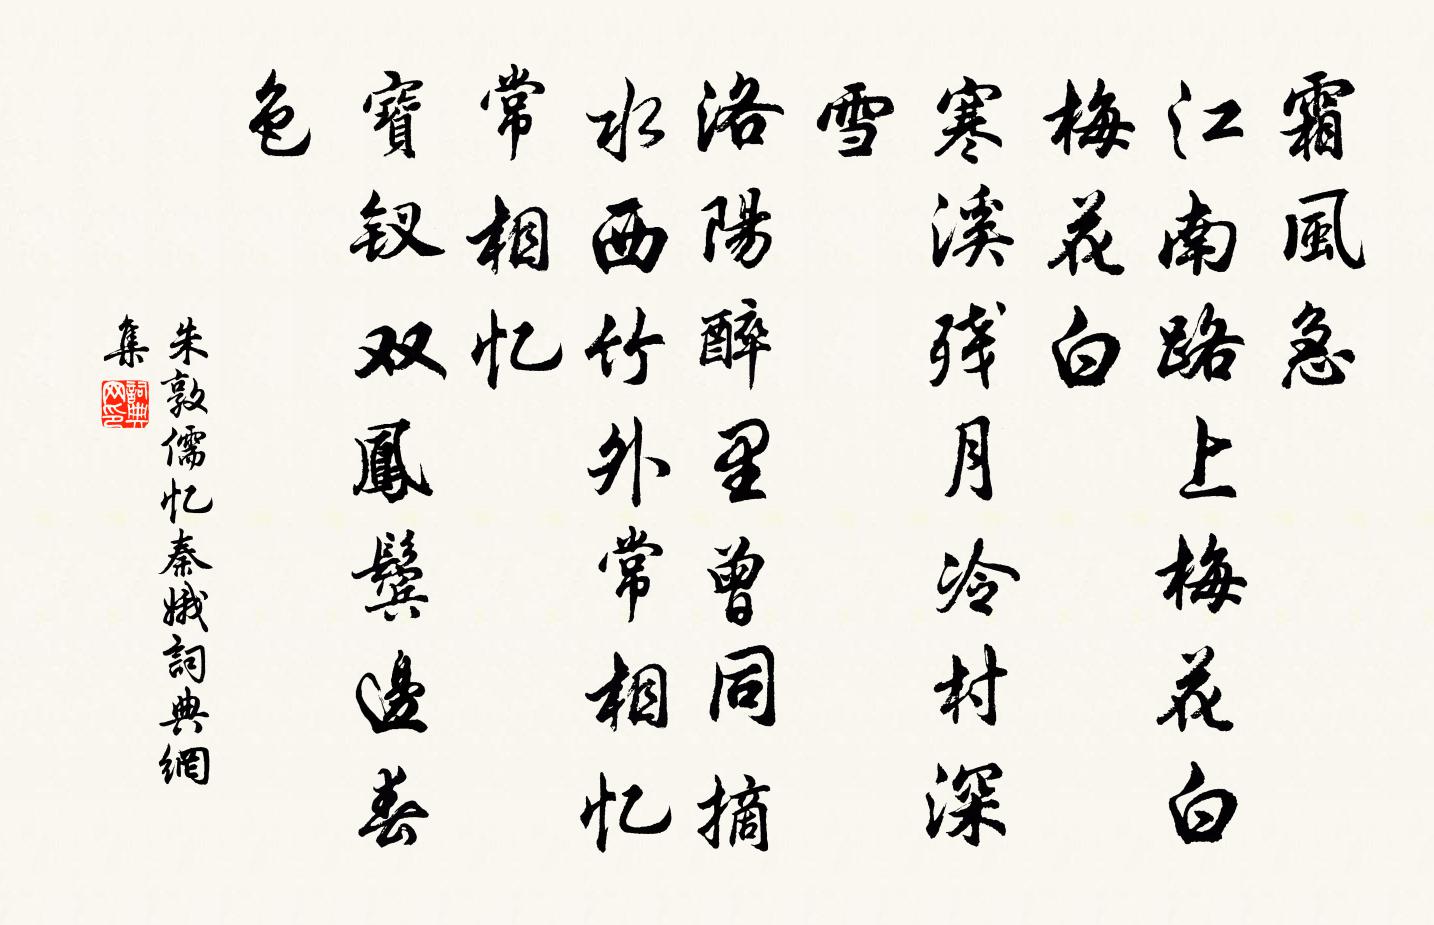 霜風急
江南路上梅花白
梅花白
寒溪残月冷村深
雪
洛陽醉里曾同摘
水西竹外常相忆
常相忆
寶钗双鳳鬓邊春
色
朱敦儒忆秦娥詞典網
集
詞典网印